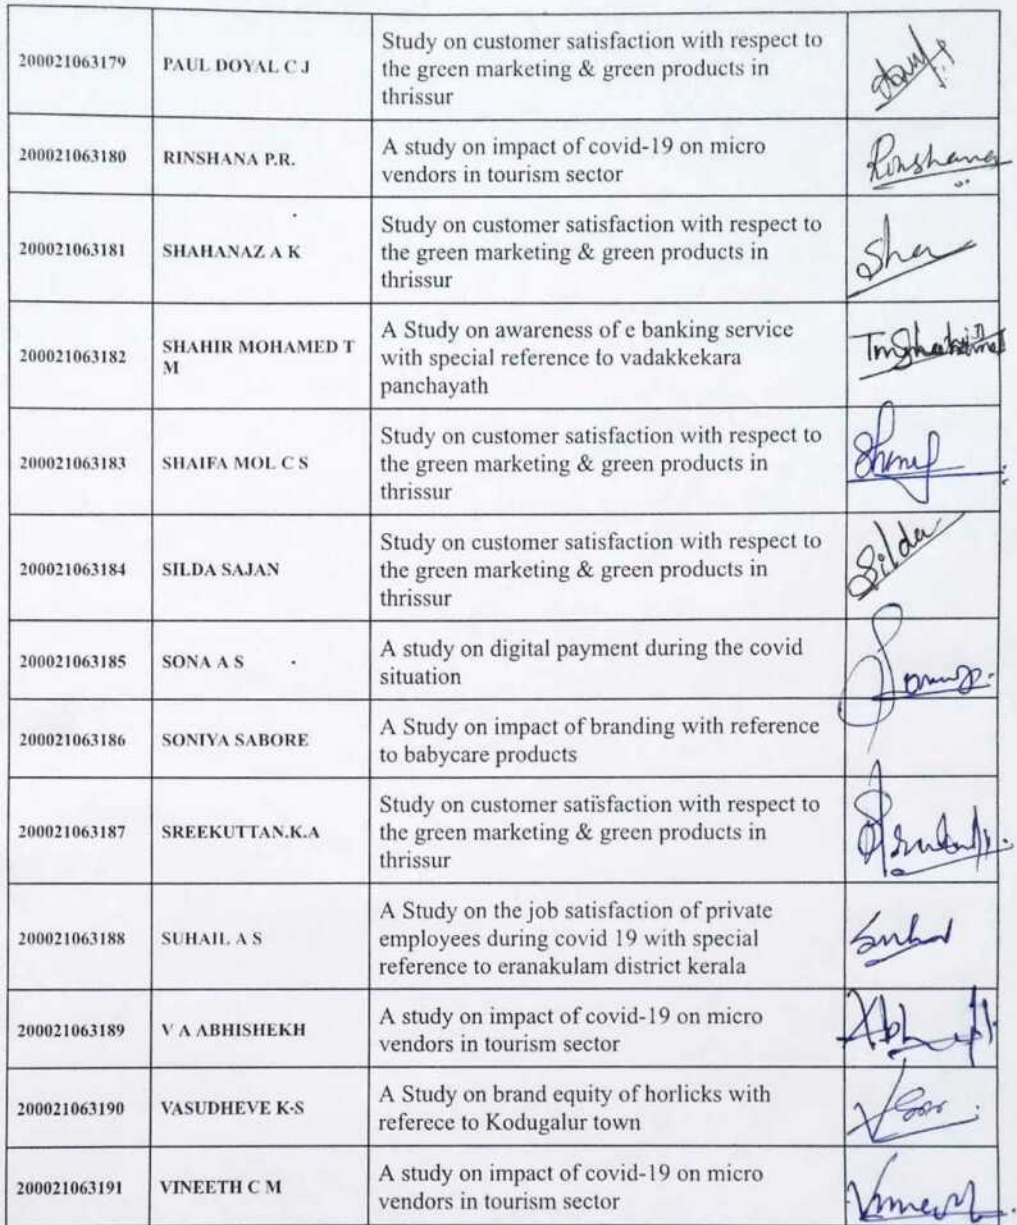 200021063179 PAUL DOYAL C J Study on customer satisfaction with respect to
the green marketing & green products in
thrissur
200021063180 RINSHANA P.R. A study on impact of covid-19 on micro
vendors in tourism sector
Rinshana
200021063181 SHAHANAZ A K Study on customer satisfaction with respect to
the green marketing & green products in
thrissur
Sha
200021063182 SHAHIR MOHAMED T
M
A Study on awareness of e banking service
with special reference to vadakkekara
panchayath
200021063183 SHAIFA MOL C S Study on customer satisfaction with respect to
the green marketing & green products in
thrissur
200021063184 SILDA SAJAN Study on customer satisfaction with respect to
the green marketing & green products in
thrissur
Silda
200021063185 SONA A S A study on digital payment during the covid
situation
200021063186 SONIYA SABORE A Study on impact of branding with reference
to babycare products
200021063187 SREEKUTTAN.K.A Study on customer satisfaction with respect to
the green marketing & green products in
thrissur
200021063188 SUHAIL A S A Study on the job satisfaction of private
employees during covid 19 with special
reference to eranakulam district kerala
200021063189 V A ABHISHEKH A study on impact of covid-19 on micro
vendors in tourism sector
200021063190 VASUDHEVE K-S A Study on brand equity of horlicks with
referece to Kodugalur town
200021063191 VINEETH C M A study on impact of covid-19 on micro
vendors in tourism sector